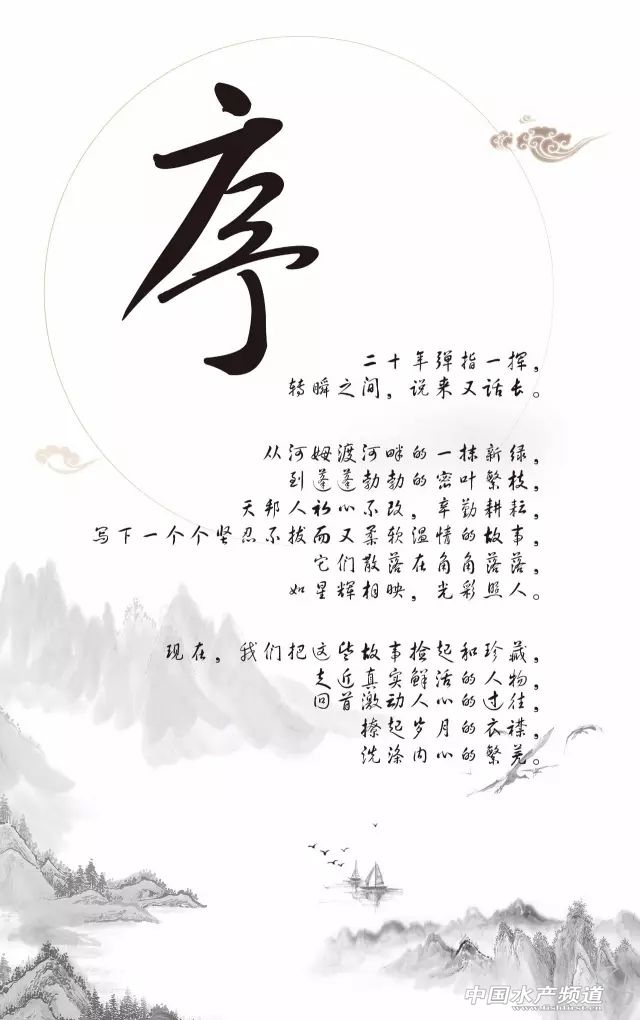 序
二十年弹指一挥，
转瞬之间，说来又话长。
从河姆渡河畔的一抹新绿，
到蓬蓬勃勃的密叶繁枝，
天邦人初心不改，辛勤耕耘，
写下一个个坚忍不拔而又柔软温情的故事，
它们散落在角角落落，
如星辉相映，光彩照人。
现在，我们把这些故事捡起和珍藏，
走近真实鲜活的人物，
回首激动人心的过往，
撩起岁月的衣襟，
洗涤内心的繁芜。
中国水产频道
www.fishfirst.cn